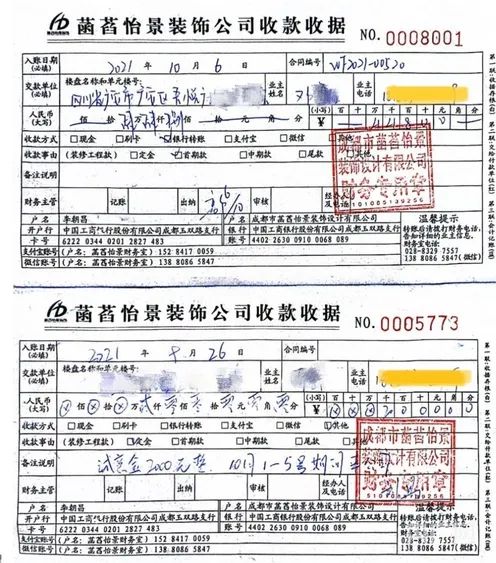 菡萏怡景装饰公司收款收据 NO.0008001
入账日期(必填) 2021 年 10 月 6 日 合同编号 WF2021-00520
交款单位(必填) 楼盘名称和单元楼号: 业主姓名 业主电话
人民币(大写) 佰 拾 万 仟 佰 拾 元 角 分 (小写) 百 十 万 千 百 十 元 角 分
收款方式 □现金 □刷卡 □银行转账 □支付宝 □微信 □其他
收款事由 (装修工程款) □定金 □首期款 □中期款 □尾款 □其他
备注说明
财务主管 记账 出纳 经办人及电话
户名 李朝昌 户名 成都市菡萏怡景装饰设计有限公司 温馨提示
开户行 中国工商银行股份有限公司成都玉双路支行 开户行 中国工商银行股份有限公司成都玉双路支行 转账后请拨打财务电话,告知详细的业主信息。
卡号 6222 0344 0201 2827 483 账号 4402 2630 0910 0068 089 财务电话: 028-8329 7557
支付宝账号 (户名:菡萏怡景财务室) 152 8417 0059 微信账号 (户名:菡萏怡景财务室) 138 8086 5847 138 8086 5847(微信)
成都市菡萏怡景
装饰设计有限公司
财务专用章
5101085139256
第一联:收据存根(白) 第二联:交给付款单位(红) 第三联:会计记账(黄)
菡萏怡景装饰公司收款收据 NO.0005773
入账日期(必填) 2021 年 9 月 26 日 合同编号
交款单位(必填) 楼盘名称和单元楼号: 业主姓名 业主电话
人民币(大写) ⊗佰⊗拾⊗万贰仟零佰零拾零元零角零分 (小写) 百 十 万 千 百 十 元 角 分 200000
收款方式 □现金 □刷卡 □银行转账 □支付宝 □微信 □其他
收款事由 (装修工程款) □定金 □首期款 □中期款 □尾款 □其他
备注说明 诚意金2000元整 10月1-5号期间
财务主管 记账 出纳 经办人及电话
户名 李朝昌 户名 成都市菡萏怡景装饰设计有限公司 温馨提示
开户行 中国工商银行股份有限公司成都玉双路支行 开户行 中国工商银行股份有限公司成都玉双路支行 转账后请拨打财务电话,告知详细的业主信息。
卡号 6222 0344 0201 2827 483 账号 4402 2630 0910 0068 089 财务电话: 028-8329 7557
支付宝账号 (户名:菡萏怡景财务室) 152 8417 0059 微信账号 (户名:菡萏怡景财务室) 138 8086 5847 138 8086 5847(微信)
成都市菡萏怡景
装饰设计有限公司
财务专用章
5101085139256
第一联:收据存根(白) 第二联:交给付款单位(红) 第三联:会计记账(黄)